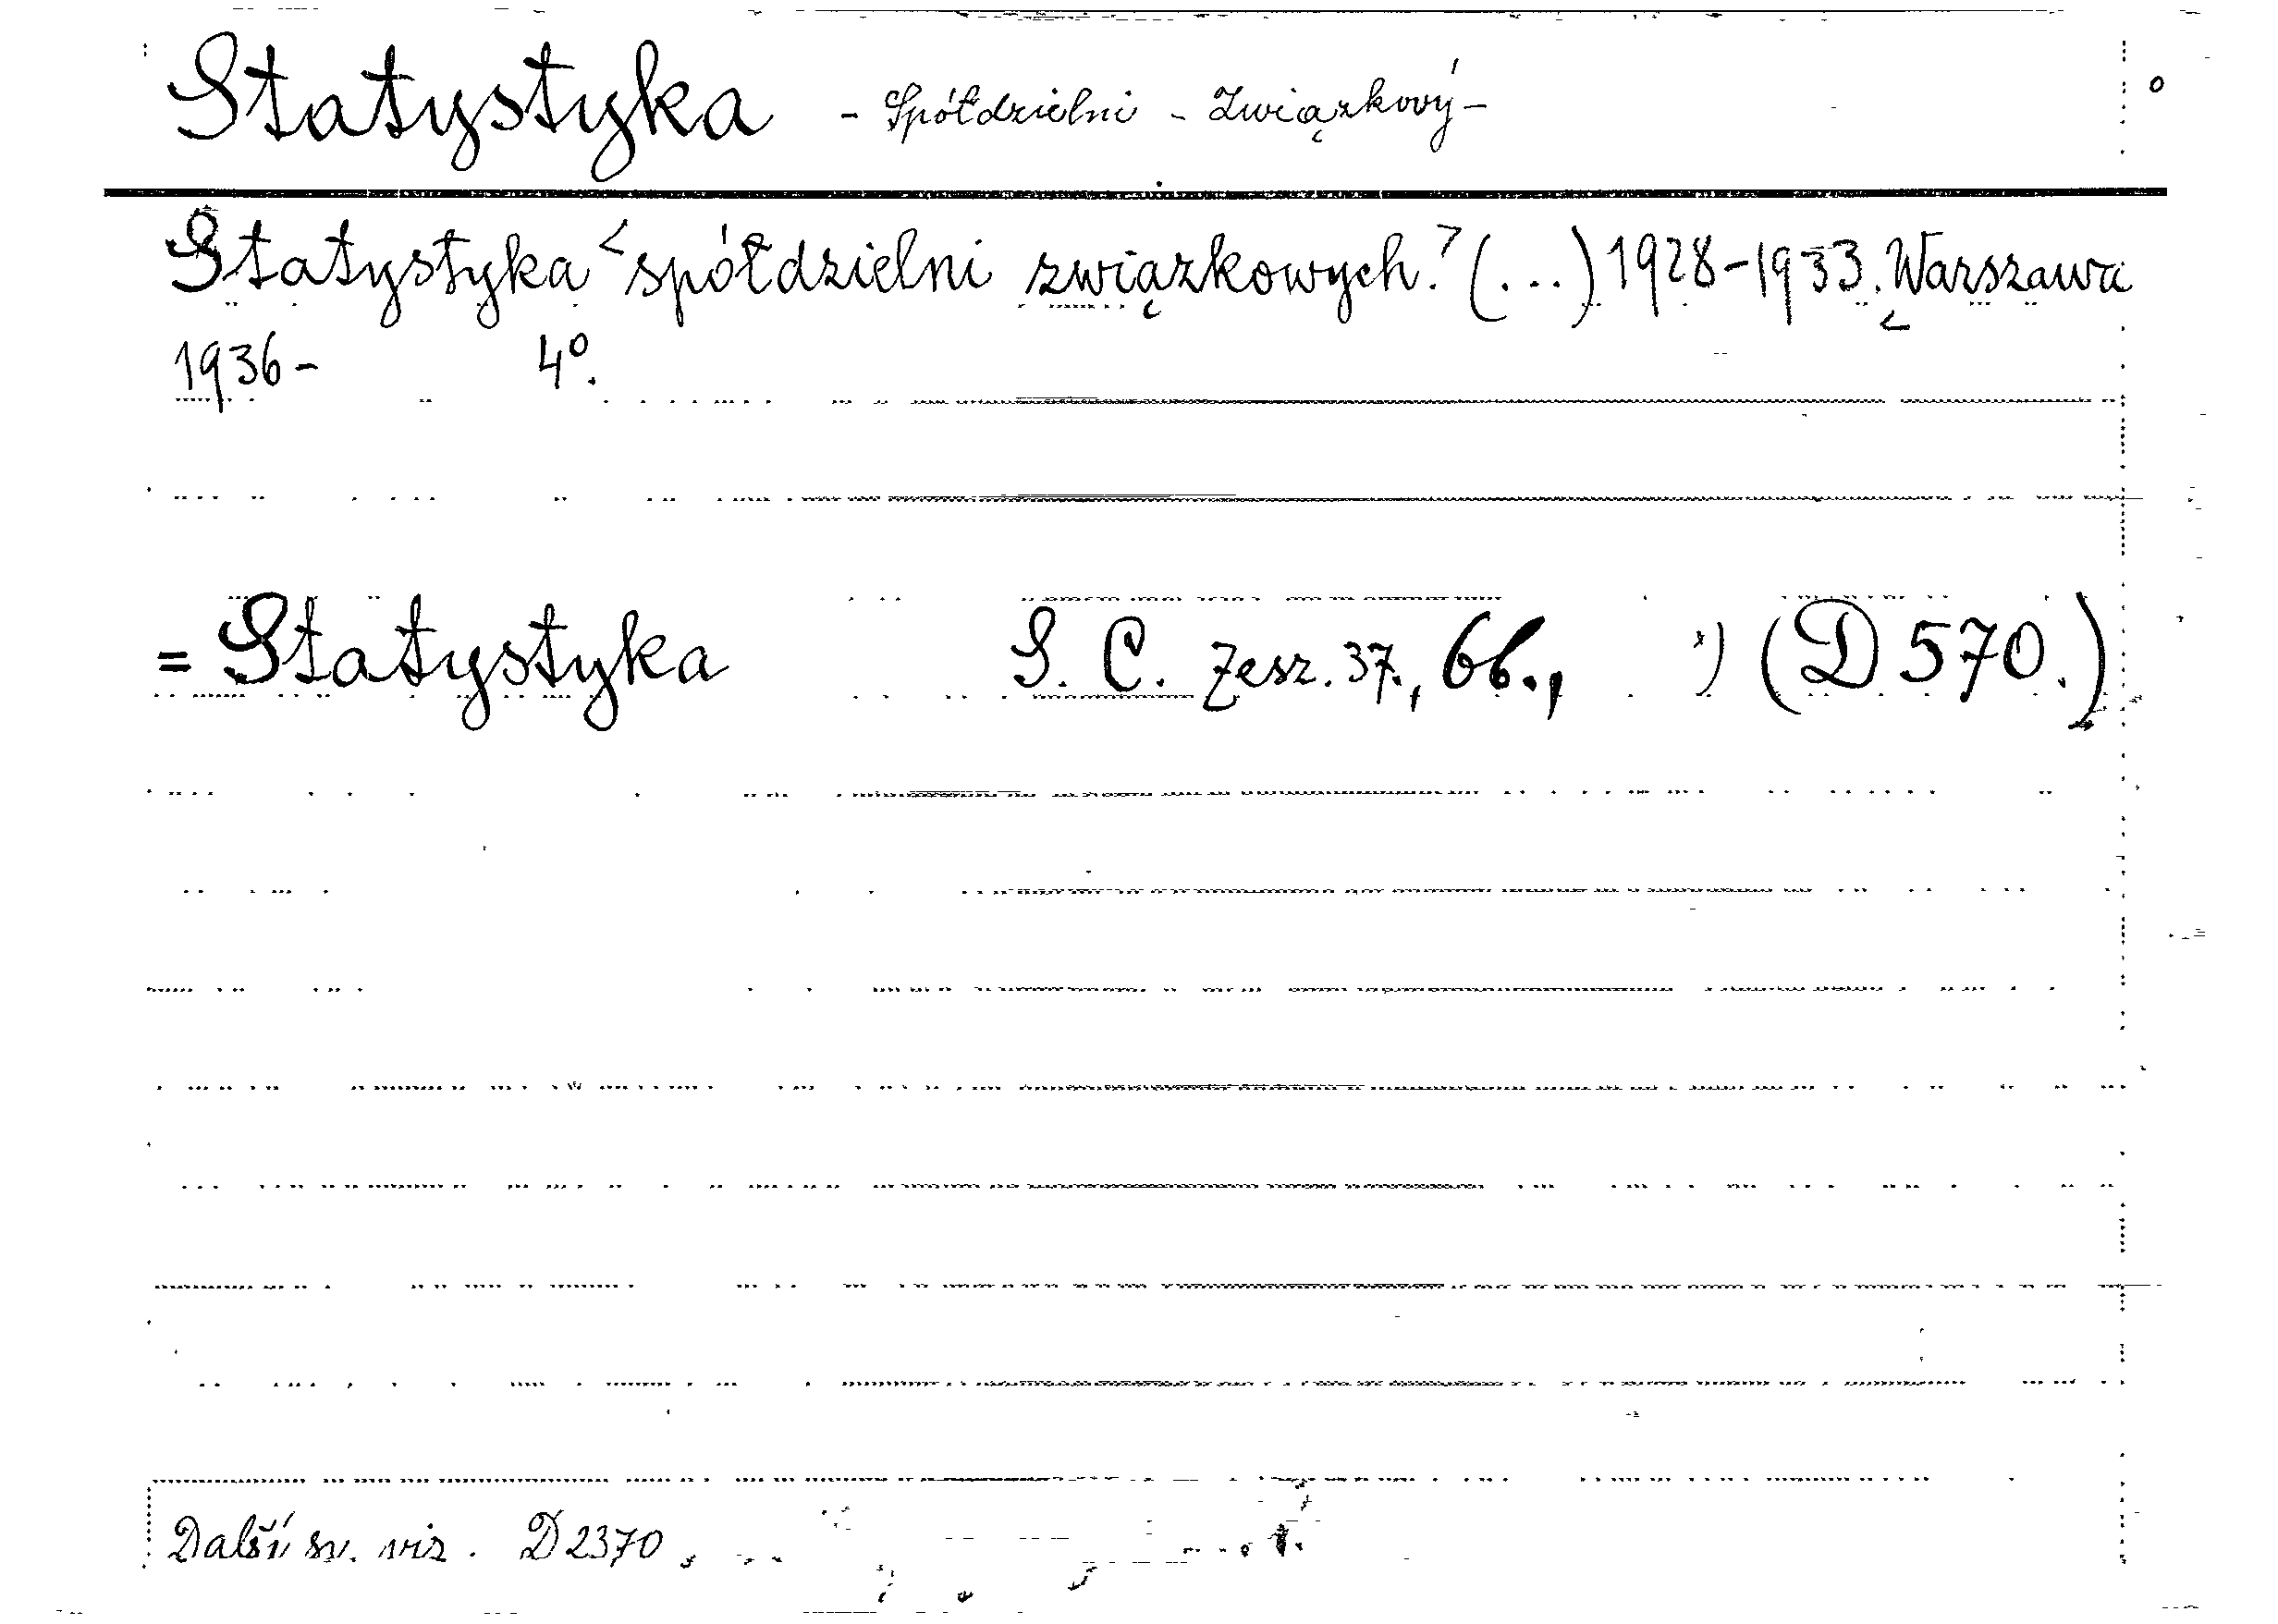 Statystyka - Spółdzielni - Związkový -
Statystyka <spółdzielni związkowych.> (...) 1928-1933. Warszawa
1936- 4°.
= Statystyka S. C. zesz. 37., 6b., *) (D 570.)
Další sv. viz. D 2370